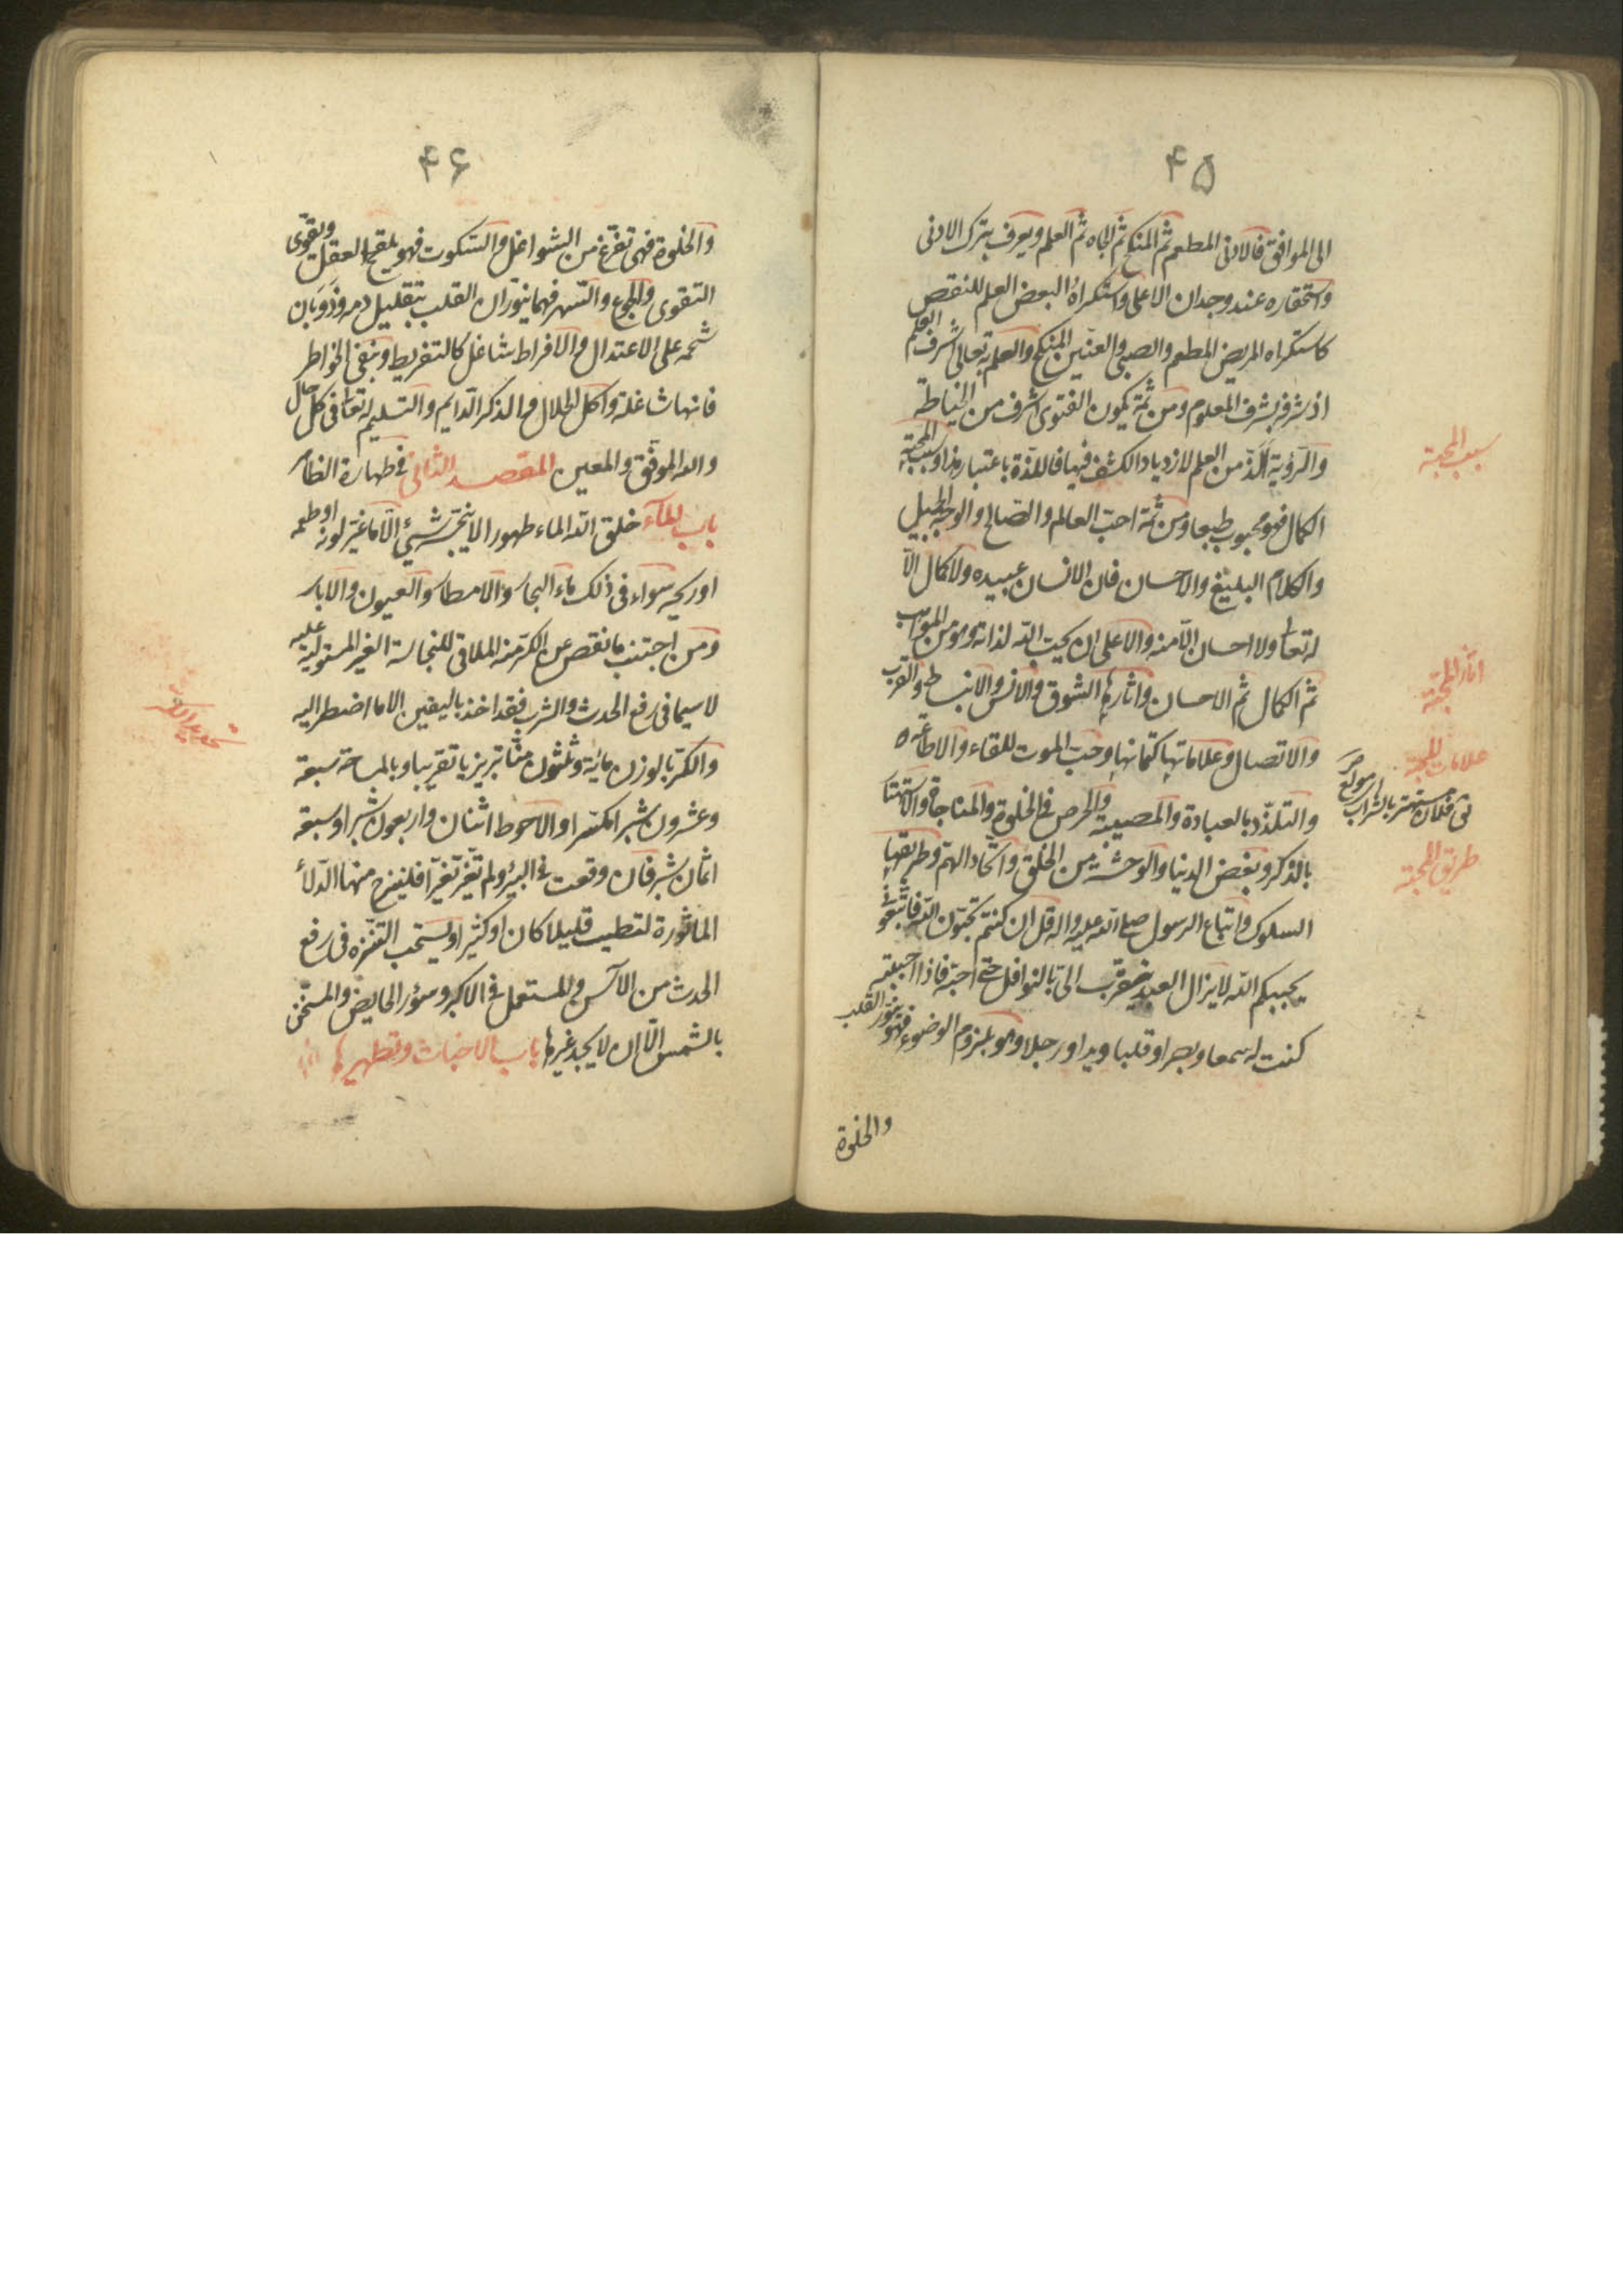 ۴۵
الى الموافق فالادنى المطعم ثم المنكح ثم الجاه ثم العلم ويعرف بترك الادنى
واستحقاره عند وجدان الاعلى واستكراه البعض العلم للنقص
كاستكراه المريض المطعم والصبى والعنين المنكح والعلم به تعالى اشرف العلم
اذ شرفه بشرف المعلوم ومن ثمة يكون الفتوى اشرف من الخياطة
والرؤية الذ من العلم لازدياد الكشف فيها فاللذة باعتبار هذا وسبب المحبة
الكمال فهو محبوب طبعا ومن ثمة احب العالم والصالح والوجه الجميل
والكلام البليغ والاحسان فان الانسان عبيده ولا كمال الا
له تعا ولا احسان الا منه والاعلى ان يحب الله لذاته وهو من المواهب
ثم الكمال ثم الاحسان واثارها الشوق والانس والانبساط والقرب
والاتصال وعلاماتها كتمانها وحب الموت للقاء والاطاعة
والتلذذ بالعبادة والمصيبة والحرص فى الخلوة والمناجاة والاستهتا
بالذكر وبغض الدنيا والوحشة من الخلق واتحاد الهم وطريقها
السلوك واتباع الرسول صلى الله عليه واله قل ان كنتم تحبون الله فاتبعونى
يحببكم الله لا يزال العبد يتقرب الى بالنوافل حتى احبه فاذا احببته
كنت له سمعا وبصرا وقلبا ويدا ورجلا وهو بلزوم الوضوء فهو ينور القلب
والخلوة
سبب المحبة
اثار المحبة
علامات المحبة
فلان مستهتر بالشراب
طريق المحبة
۴۶
والخلوة فهى تفرغ من الشواغل والسكوت فهو يلقح العقل ويقوى
التقوى والجوع والسهر فهما ينوران القلب بتقليل دمه وذوبان
شحمه على الاعتدال والافراط شاغل كالتفريط وبنفى الخواطر
فانها شاغلة واكل الحلال والذكر الدايم والتسليم له تعا فى كل حال
والله الموفق والمعين المقصد الثانى فى طهارة الظاهر
باب الماء خلق الله الماء طهورا لا ينجسه شئ الا ما غير لونه او طعمه
او ريحه سواء فى ذلك ماء البحار والامطار والعيون والابار
ومن اجتنب ما نقص عن الكر منه الملاقى للنجاسة الغير المستولية عليه
لا سيما فى رفع الحدث والشرب فقد اخذ باليقين الا ما اضطر اليه
والكر بالوزن مائة وثلثون منا تبريزيا تقريبا وبالمساحة سبعة
وعشرون شبرا مكسرا والاحوط اثنان واربعون شبرا وسبعة
اثمان شبر فان وقعت فى البئر ولم تغير تغيرا فلينزح منها الدلاء
الماثورة لتطيب قليلا كان او كثيرا ويستحب التنزه فى رفع
الحدث من الآسن والمستعمل فى الاكبر وسؤر الحايض والمسخن
بالشمس الا ان لا يجد غيرها باب الاخباث وتطهيرها